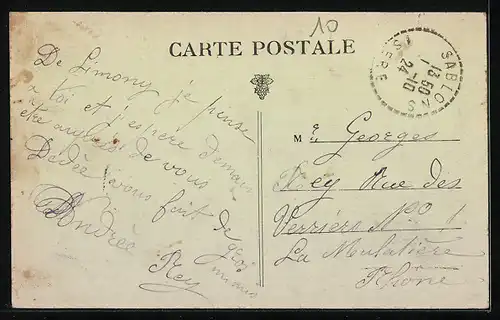 10
CARTE POSTALE
SABLONS
13 50
24 -10
ISERE
De Limony je pense
a toi et j'espère demain
etre auprès de vous
Dédée vous fait de gros
mimis
Andrée
Rey
Mr Georges
Rey Rue des
Verriers No 1
La Mulatière
Rhône